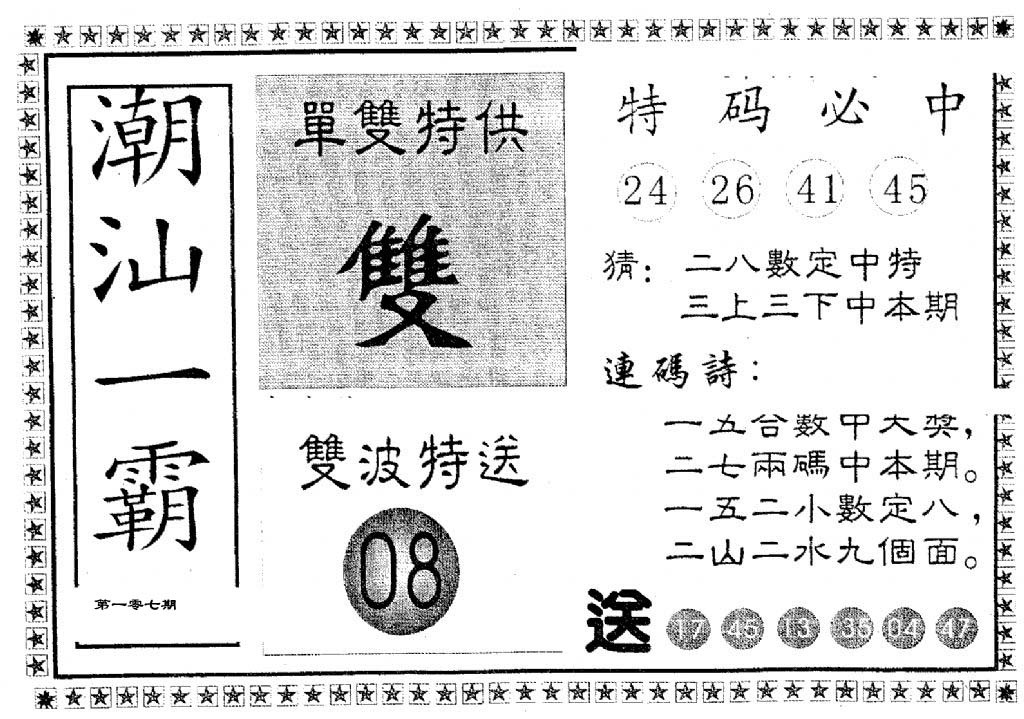 潮汕一霸
第一零七期
單雙特供
雙
雙波特送
08
特码必中
24 26 41 45
猜：二八數定中特
三上三下中本期
連碼詩：
一五合數中大獎，
二七兩碼中本期。
一五二小數定八，
二山二水九個面。
送 17 45 13 35 04 47